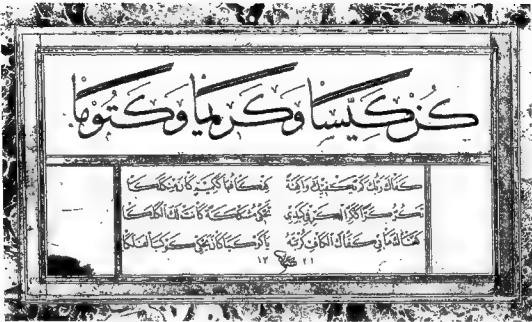 كُنْ كَيِّسًا وَكَرِيمًا وَكَتُومًا
كفاك ربك كم يكفيك واكفة كفكافها ككمين كان
تكر كرا ككر الكر في كبدي تحكي مشكشكة
كفاك ما بي كفاك الكاف كربته يا كوكبا كان يحكي كوكبا لفلكا
١٣ ٢١